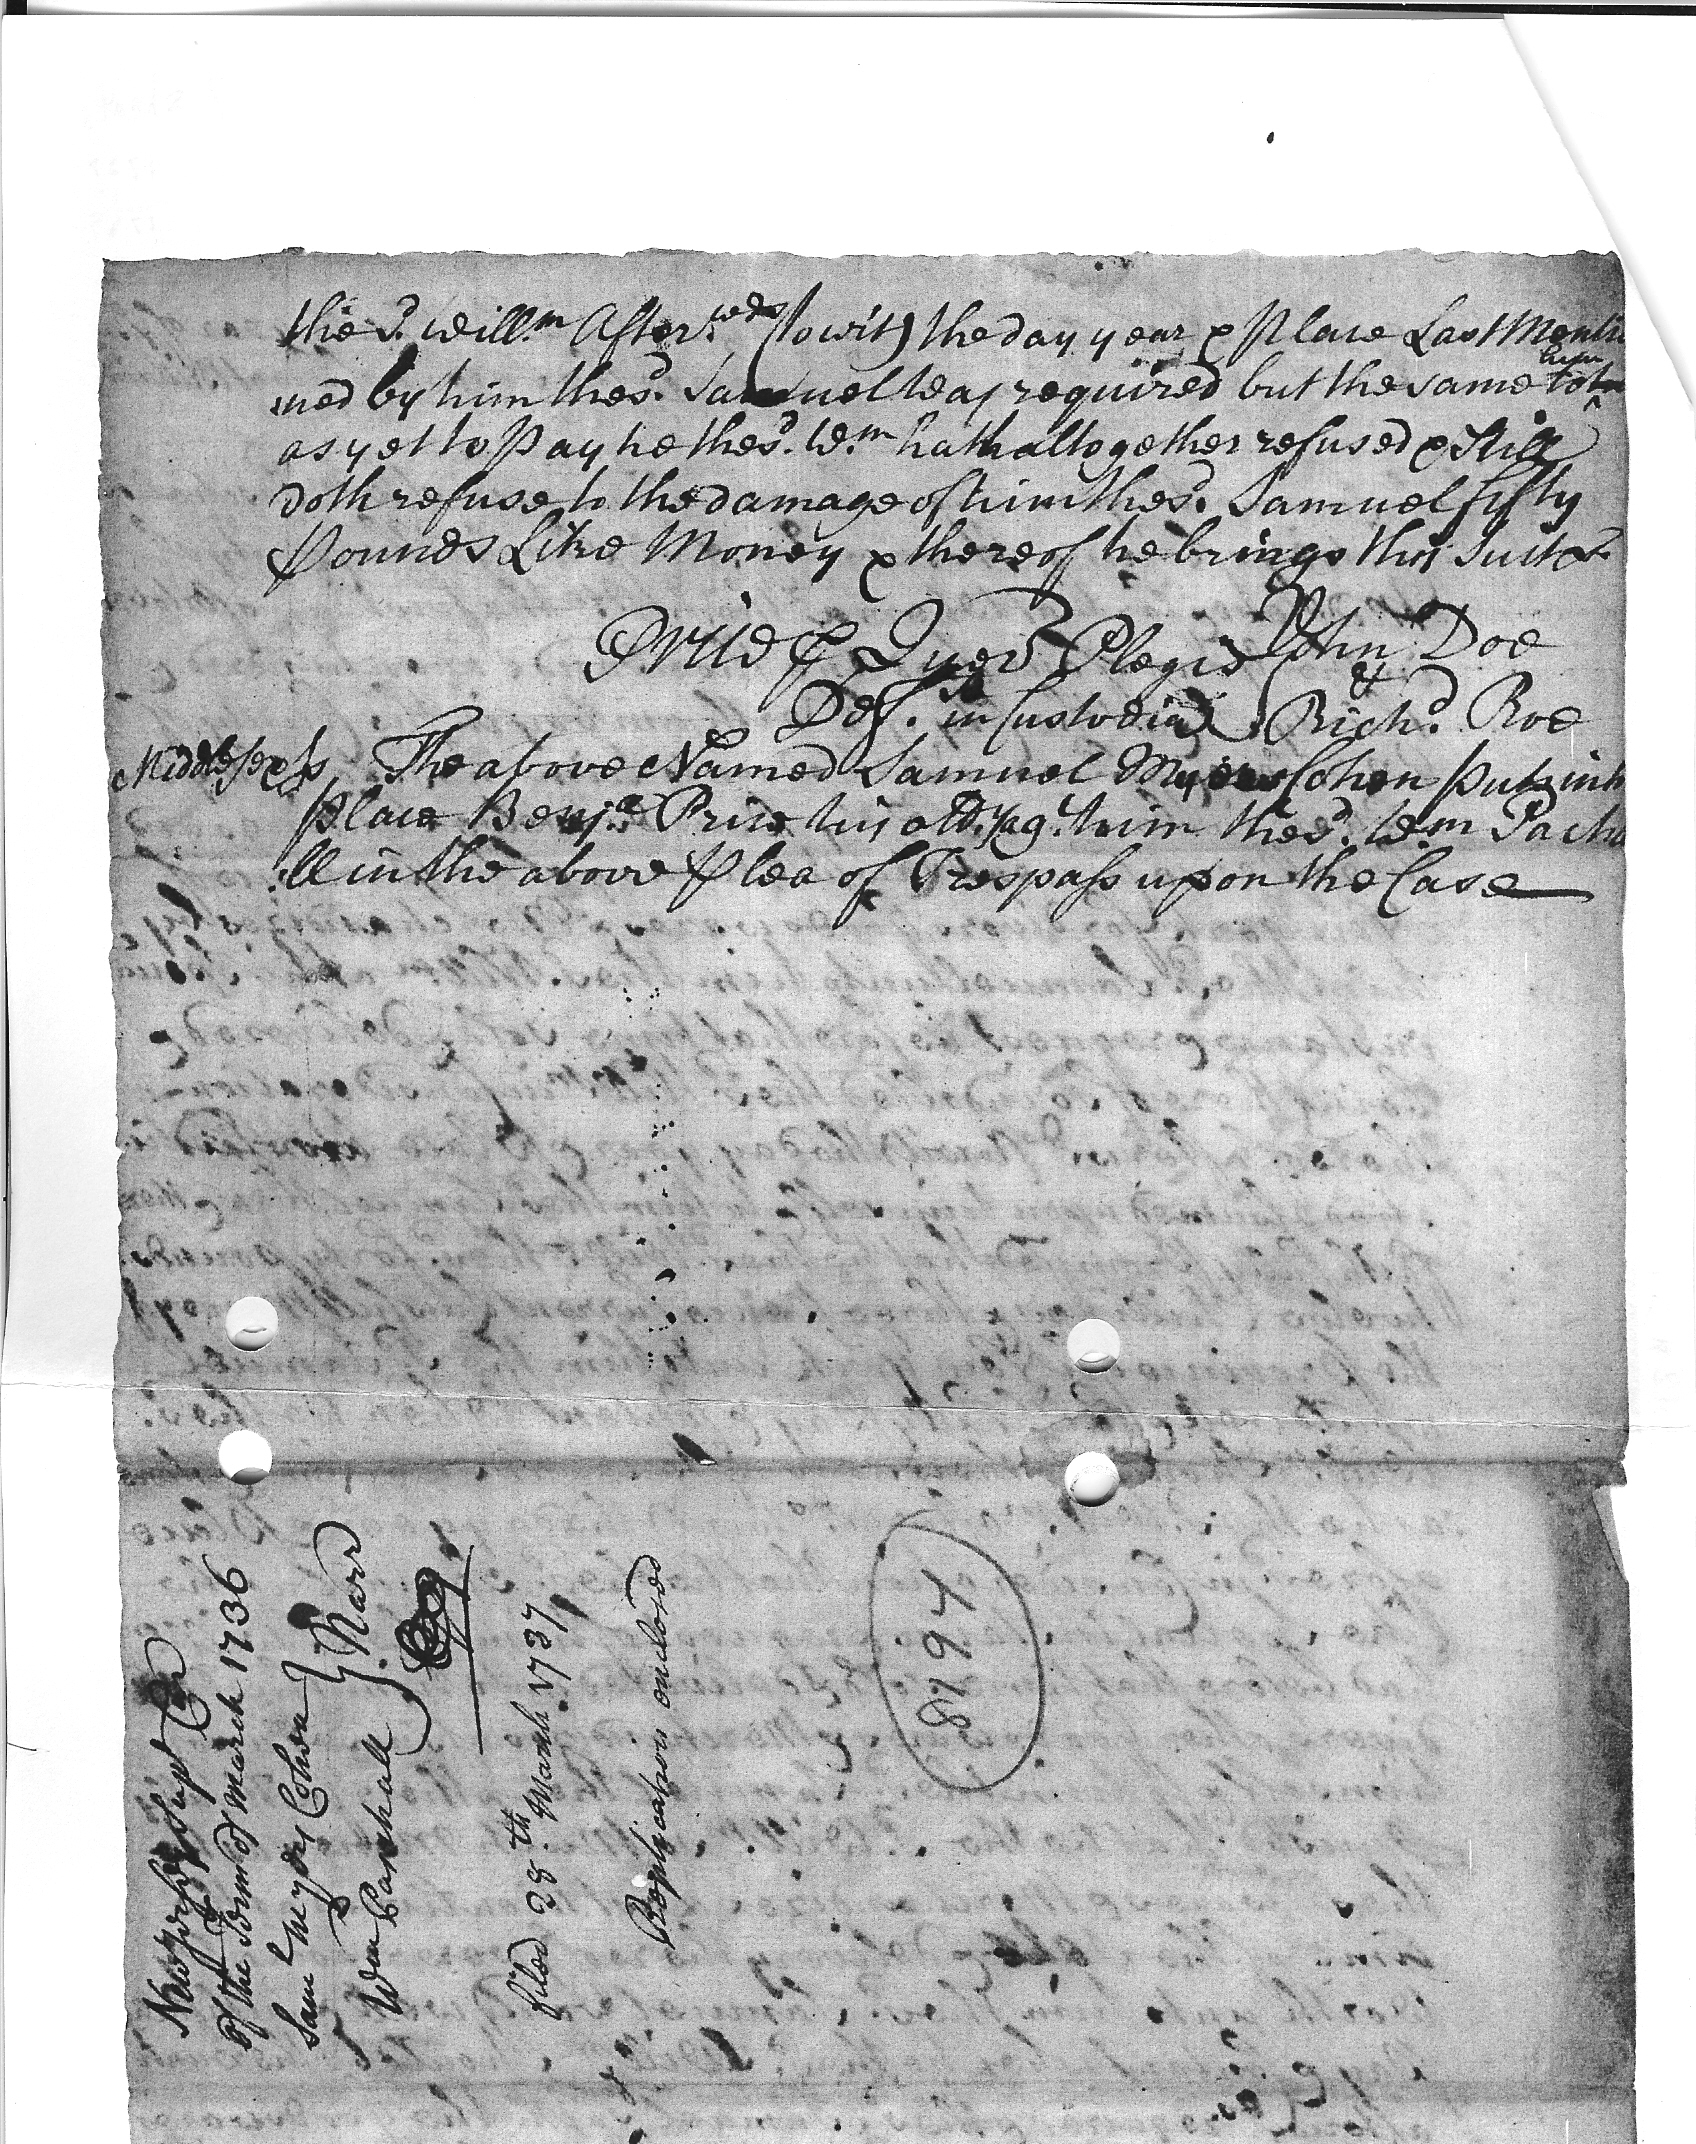 the sd. Willm. Afterwds (towit) the day year & Place Last Mentio
ned by him the sd. Samuel was required but the same to him
as yet to Pay he the sd. Wm. hath altogether refused & Still
doth refuse to the damage of him the sd. Samuel fifty
Pounds Like Money & thereof he brings this Suit &c
Price p Quer Plegii John Doe
&
Def. in Custodia Richd. Roe
Middlesex ss The above Named Samuel Myers Cohen puts in h
place Benja. Price his atty agt. him the sd. Wm. Pascha
ll in the above Plea of Trespass upon the Case
New Jersey Supr Cor
Of the Term of March 1736
Saml Myers Cohen
Narr
Wm Paschall
filed 28th March 1737
Replication enclosed
8794